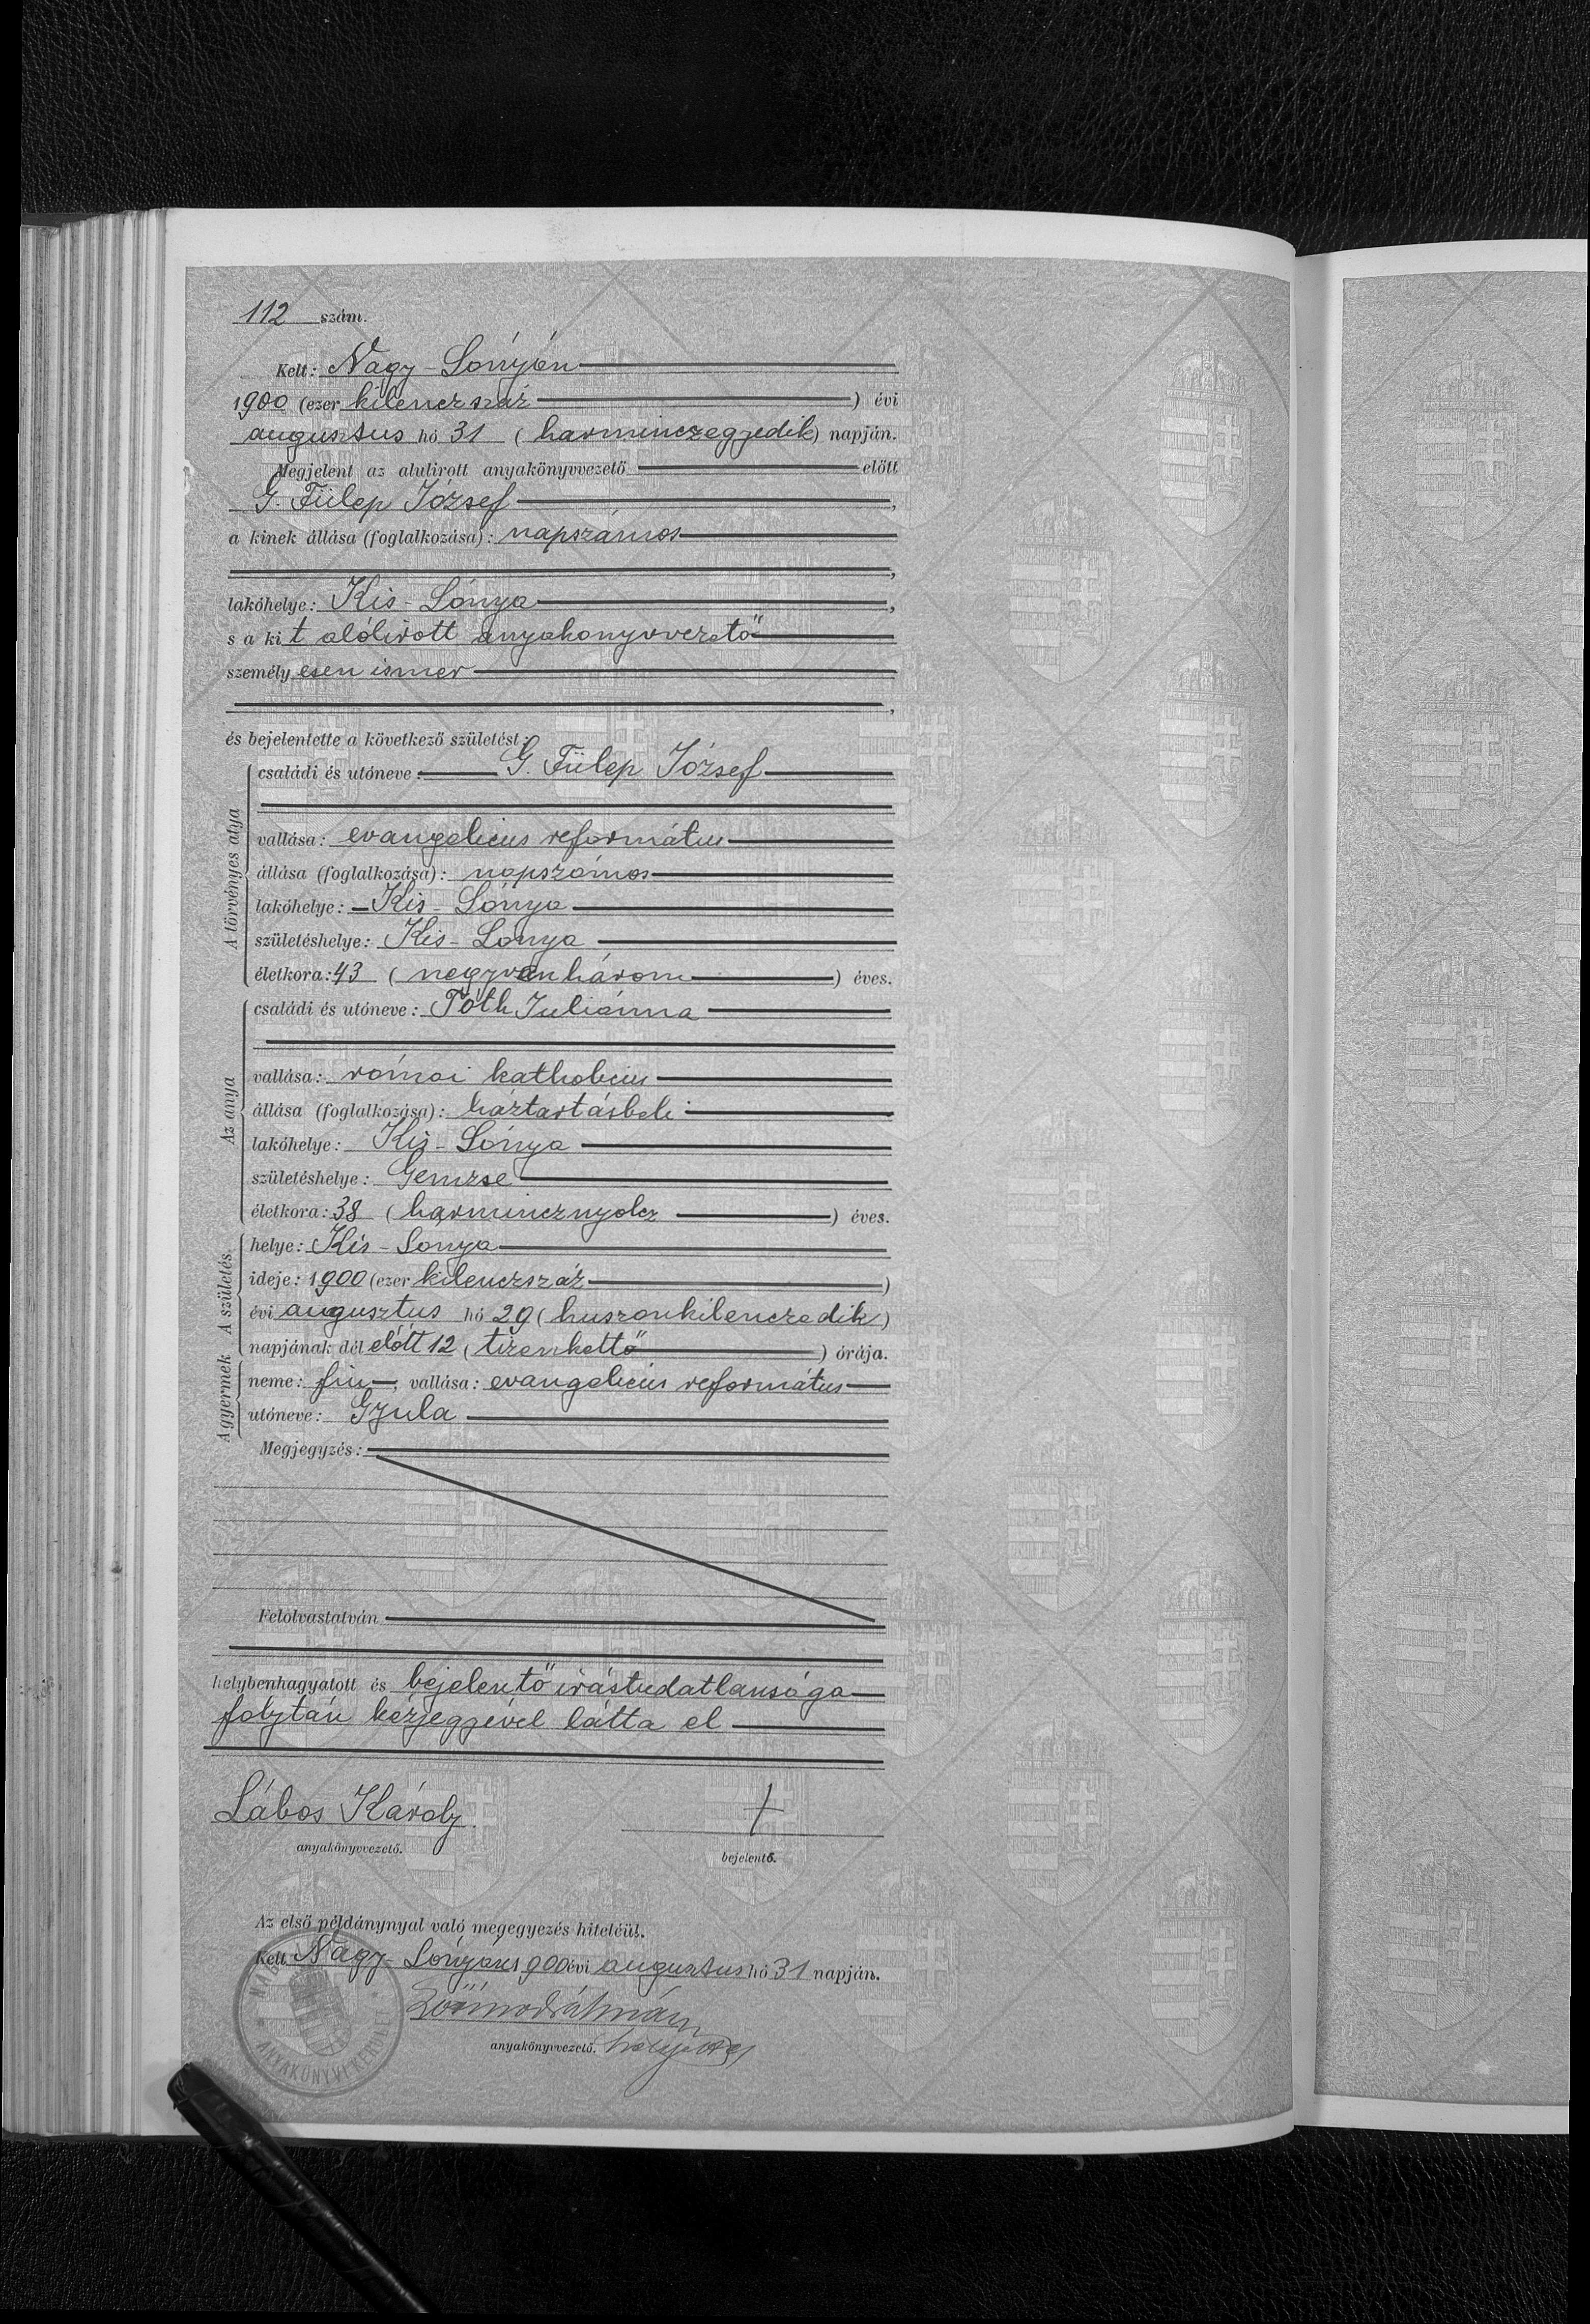 112 szám.
Kelt: Nagy-Lónyán
1900 (ezer kilenczszáz) évi
augusztus hó 31 (harminczegyedik) napján.
Megjelent az alulirott anyakönyvvezető előtt
G. Fülep József,
a kinek állása (foglalkozása): napszámos
,
lakóhelye: Kis-Lónya,
s a kit alólirott anyakönyvvezető
személyesen ismer
,
és bejelentette a következő születést:
A törvényes atya
családi és utóneve: G. Fülep József
vallása: evangelicus református
állása (foglalkozása): napszámos
lakóhelye: Kis-Lónya
születéshelye: Kis-Lónya
életkora: 43 (negyvenhárom) éves.
Az anya
családi és utóneve: Tóth Juliánna
vallása: római katholicus
állása (foglalkozása): háztartásbeli
lakóhelye: Kis-Lónya
születéshelye: Gemzse
életkora: 38 (harmincznyolcz) éves.
A születés
helye: Kis-Lonya
ideje: 1900 (ezer kilenczszáz)
évi augusztus hó 29 (huszonkilenczedik)
napjának dél előtt 12 (tizenkettő) órája.
A gyermek
neme: fiu, vallása: evangelicus református
utóneve: Gyula
Megjegyzés:
Felolvastatván
helybenhagyatott és bejelentő irástudatlansága
folytán kézjegyével látta el
Lábos Károly +
anyakönyvvezető. bejelentő.
Az első példánynyal való megegyezés hiteléül.
Kelt Nagy-Lónyán 1900 évi augusztus hó 31 napján.
anyakönyvvezető. helyettes
ANYAKÖNYVI KERÜLET